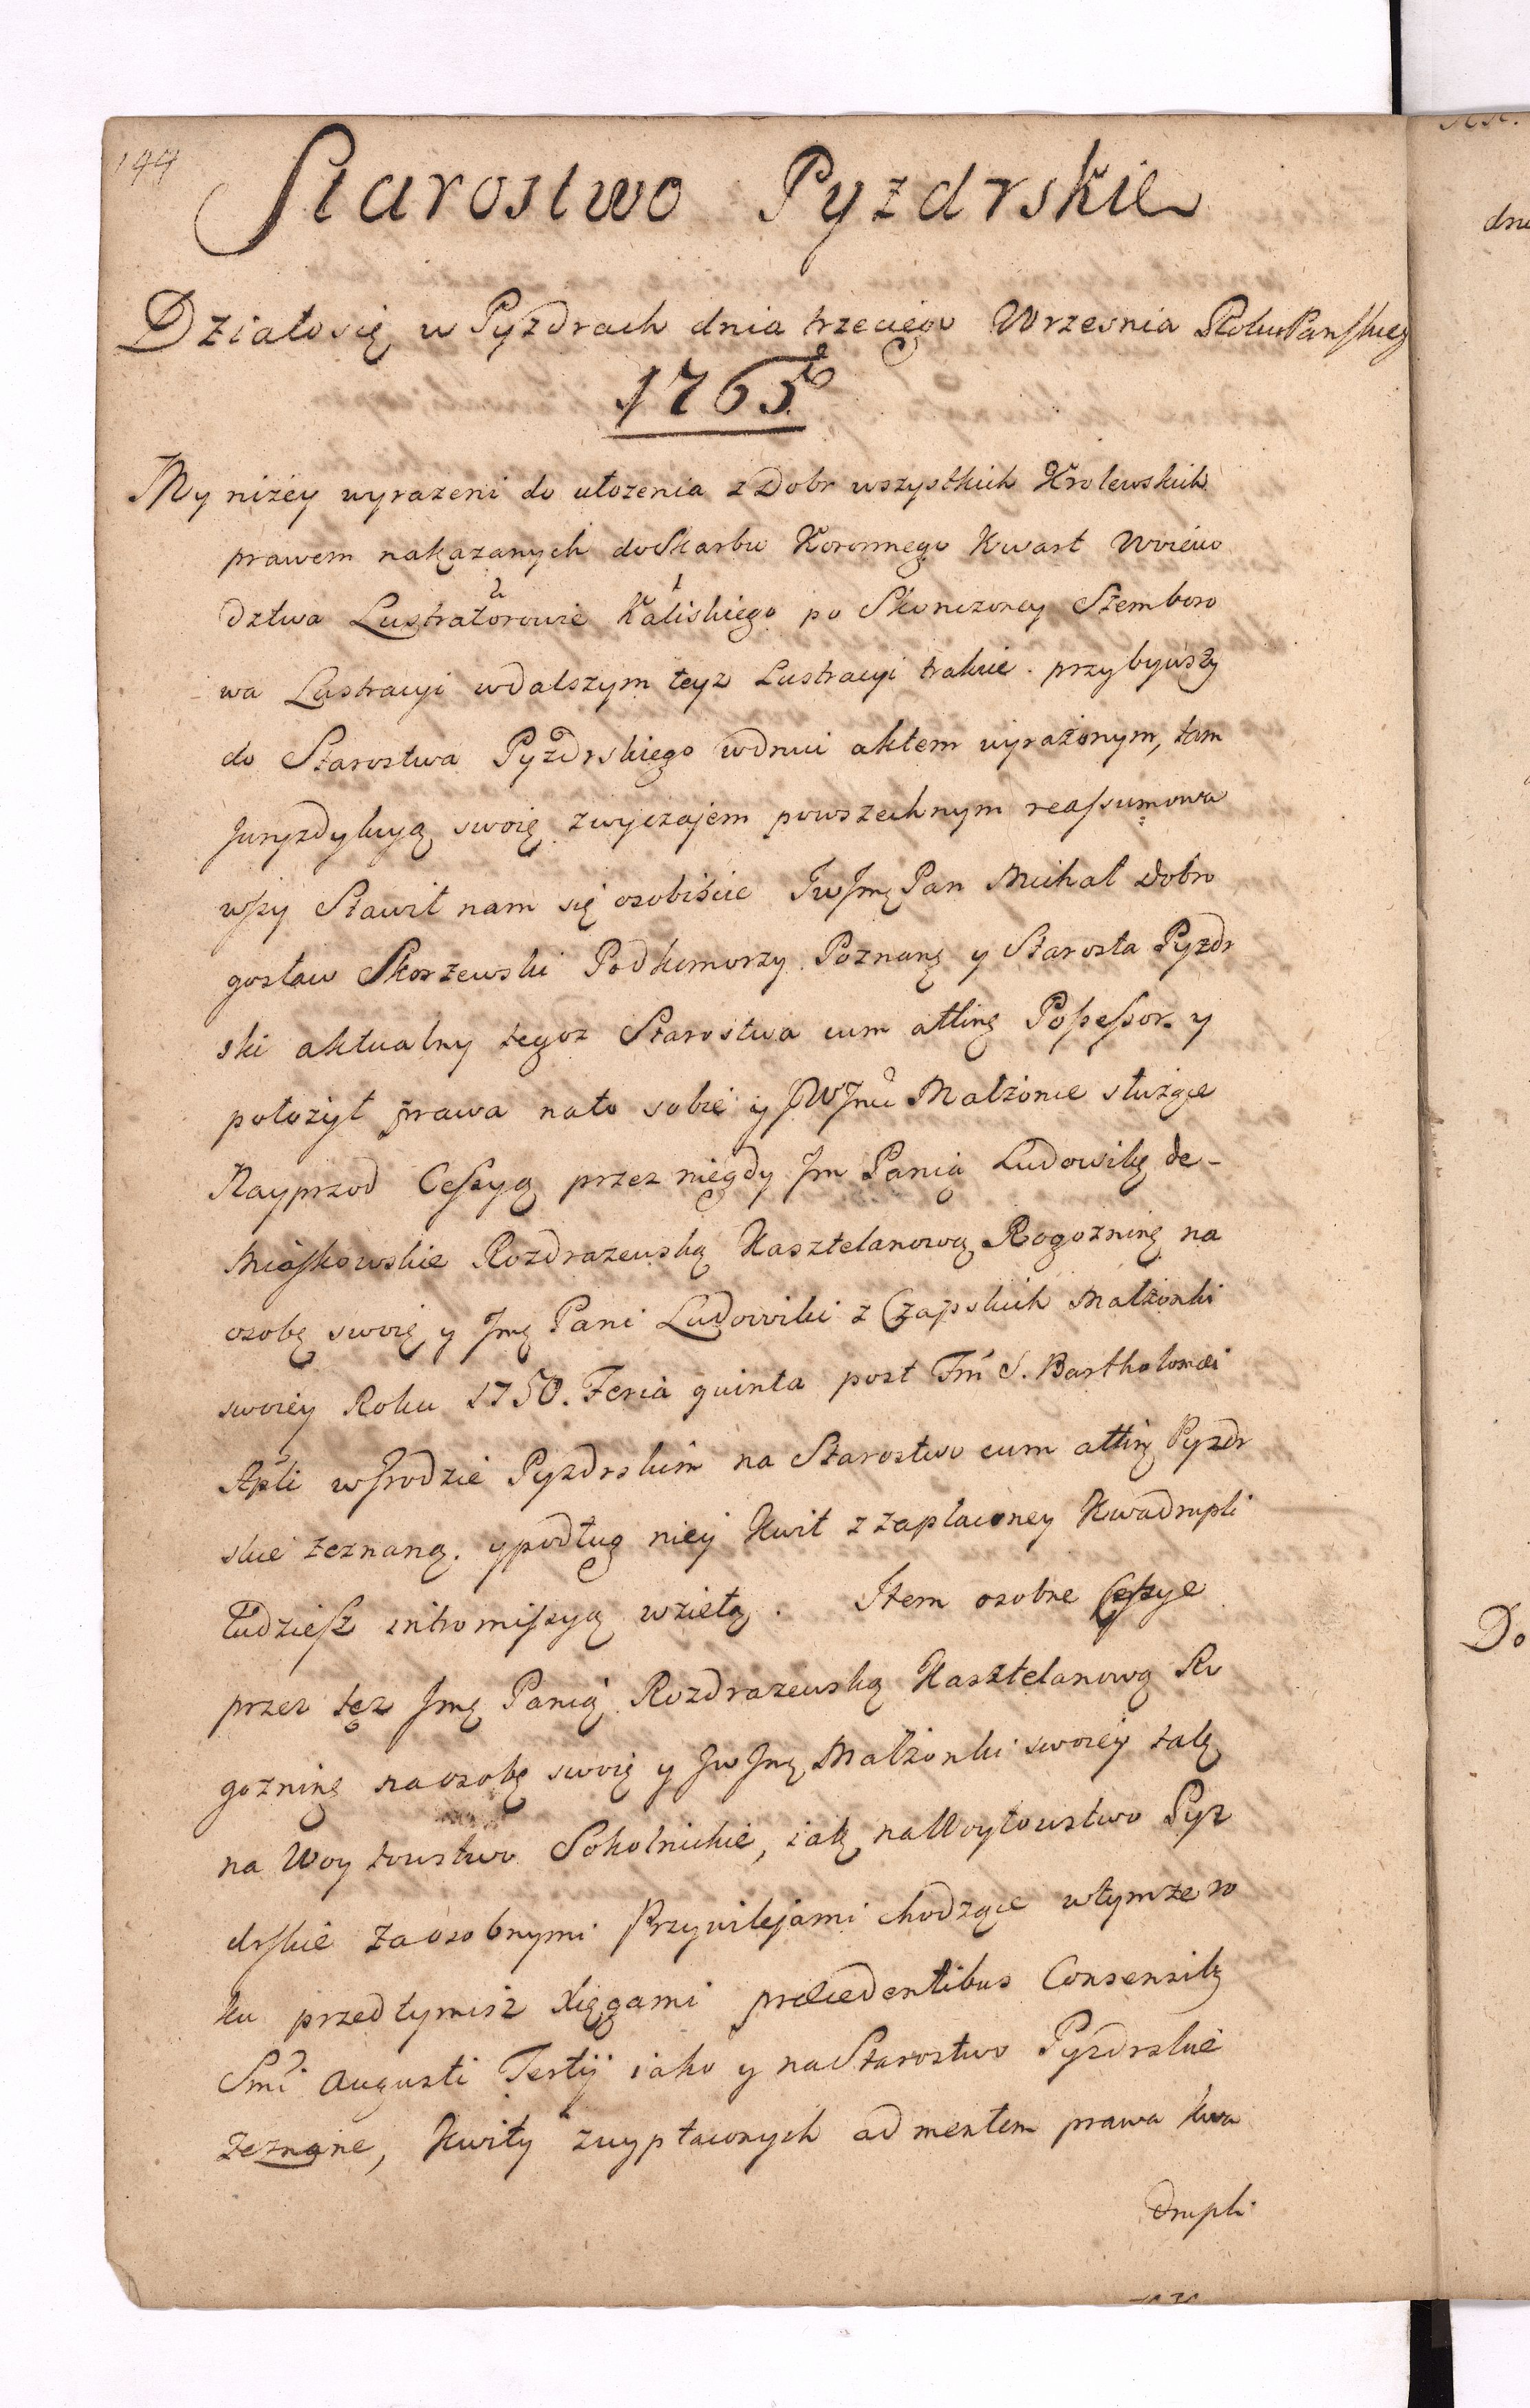 144
Starostwo Pyzdrskie
Działosię w Pyzdrach dnia trzeciego Wrzesnia Roku Panskieg
1765to
My niżey wyrazeni do ułozenia z Dobr wszystkich Krolewskich
prawem nakazanych do Skarbu Koronnego Kwart Woiewo
dztwa Lustratorowie Kaliskiego po Skonczoney Stemboro
wa Lustracyi wdalszym teyz Lustracyi trakcie przybywszy
do Starostwa Pyzdrskiego wdniu aktem wyrażonym, tam
Juryzdykcyą swoię zwyczajem powszechnym reassumowa
wszy Stawił nam się osobiście JwJmę Pan Michał Dobro
gosław Skorzewski Podkomorzy Poznanę y Starosta Pyzdr
ski aktualny tegoz Starostwa cum attinę Possessor y
położył prawa nato sobie y JWJmci Małżonce służące
Nayprzod Cessyą przez niegdy Jm Panią Ludowikę de-
Miaskowskie Rozdrazewską Kasztelanową Rogozninę na
osobę swoię y Jmę Pani Ludowiki z Czapskich Małżonki
swoiey Roku 1750. Feria quinta post Fm̃ S. Bartholomæi
Apli wGrodzie Pyzdrskim na Starostwo cum attinę Pyzdr
skie zeznaną. ypodług niey Kwit z zapłaconey Kwadrupli
Tudziesz intromissyą wziętą. Item osobne Cessye
przez tęz Jmę Panią Rozdrazewską Kasztelanową Ro
gozninę naosobę swoię y JwJmę Małżonki swoiey tak
na Woytowstwo Sokolnickie, iak naWoytowstwo Pyz
drskie zaosobnymi Przywilejami chodzące wtymze ro
ku przedtymisz Xięgami præcedentibus Consensibꝫ
Smi Augusti Tertij iako y naStarostwo Pyzdrskie
zeznane, Kwity zwypłaconych ad mentem prawa kwa
drupli